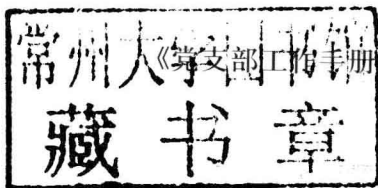 常州大学图书馆
《党支部工作手册
藏书章